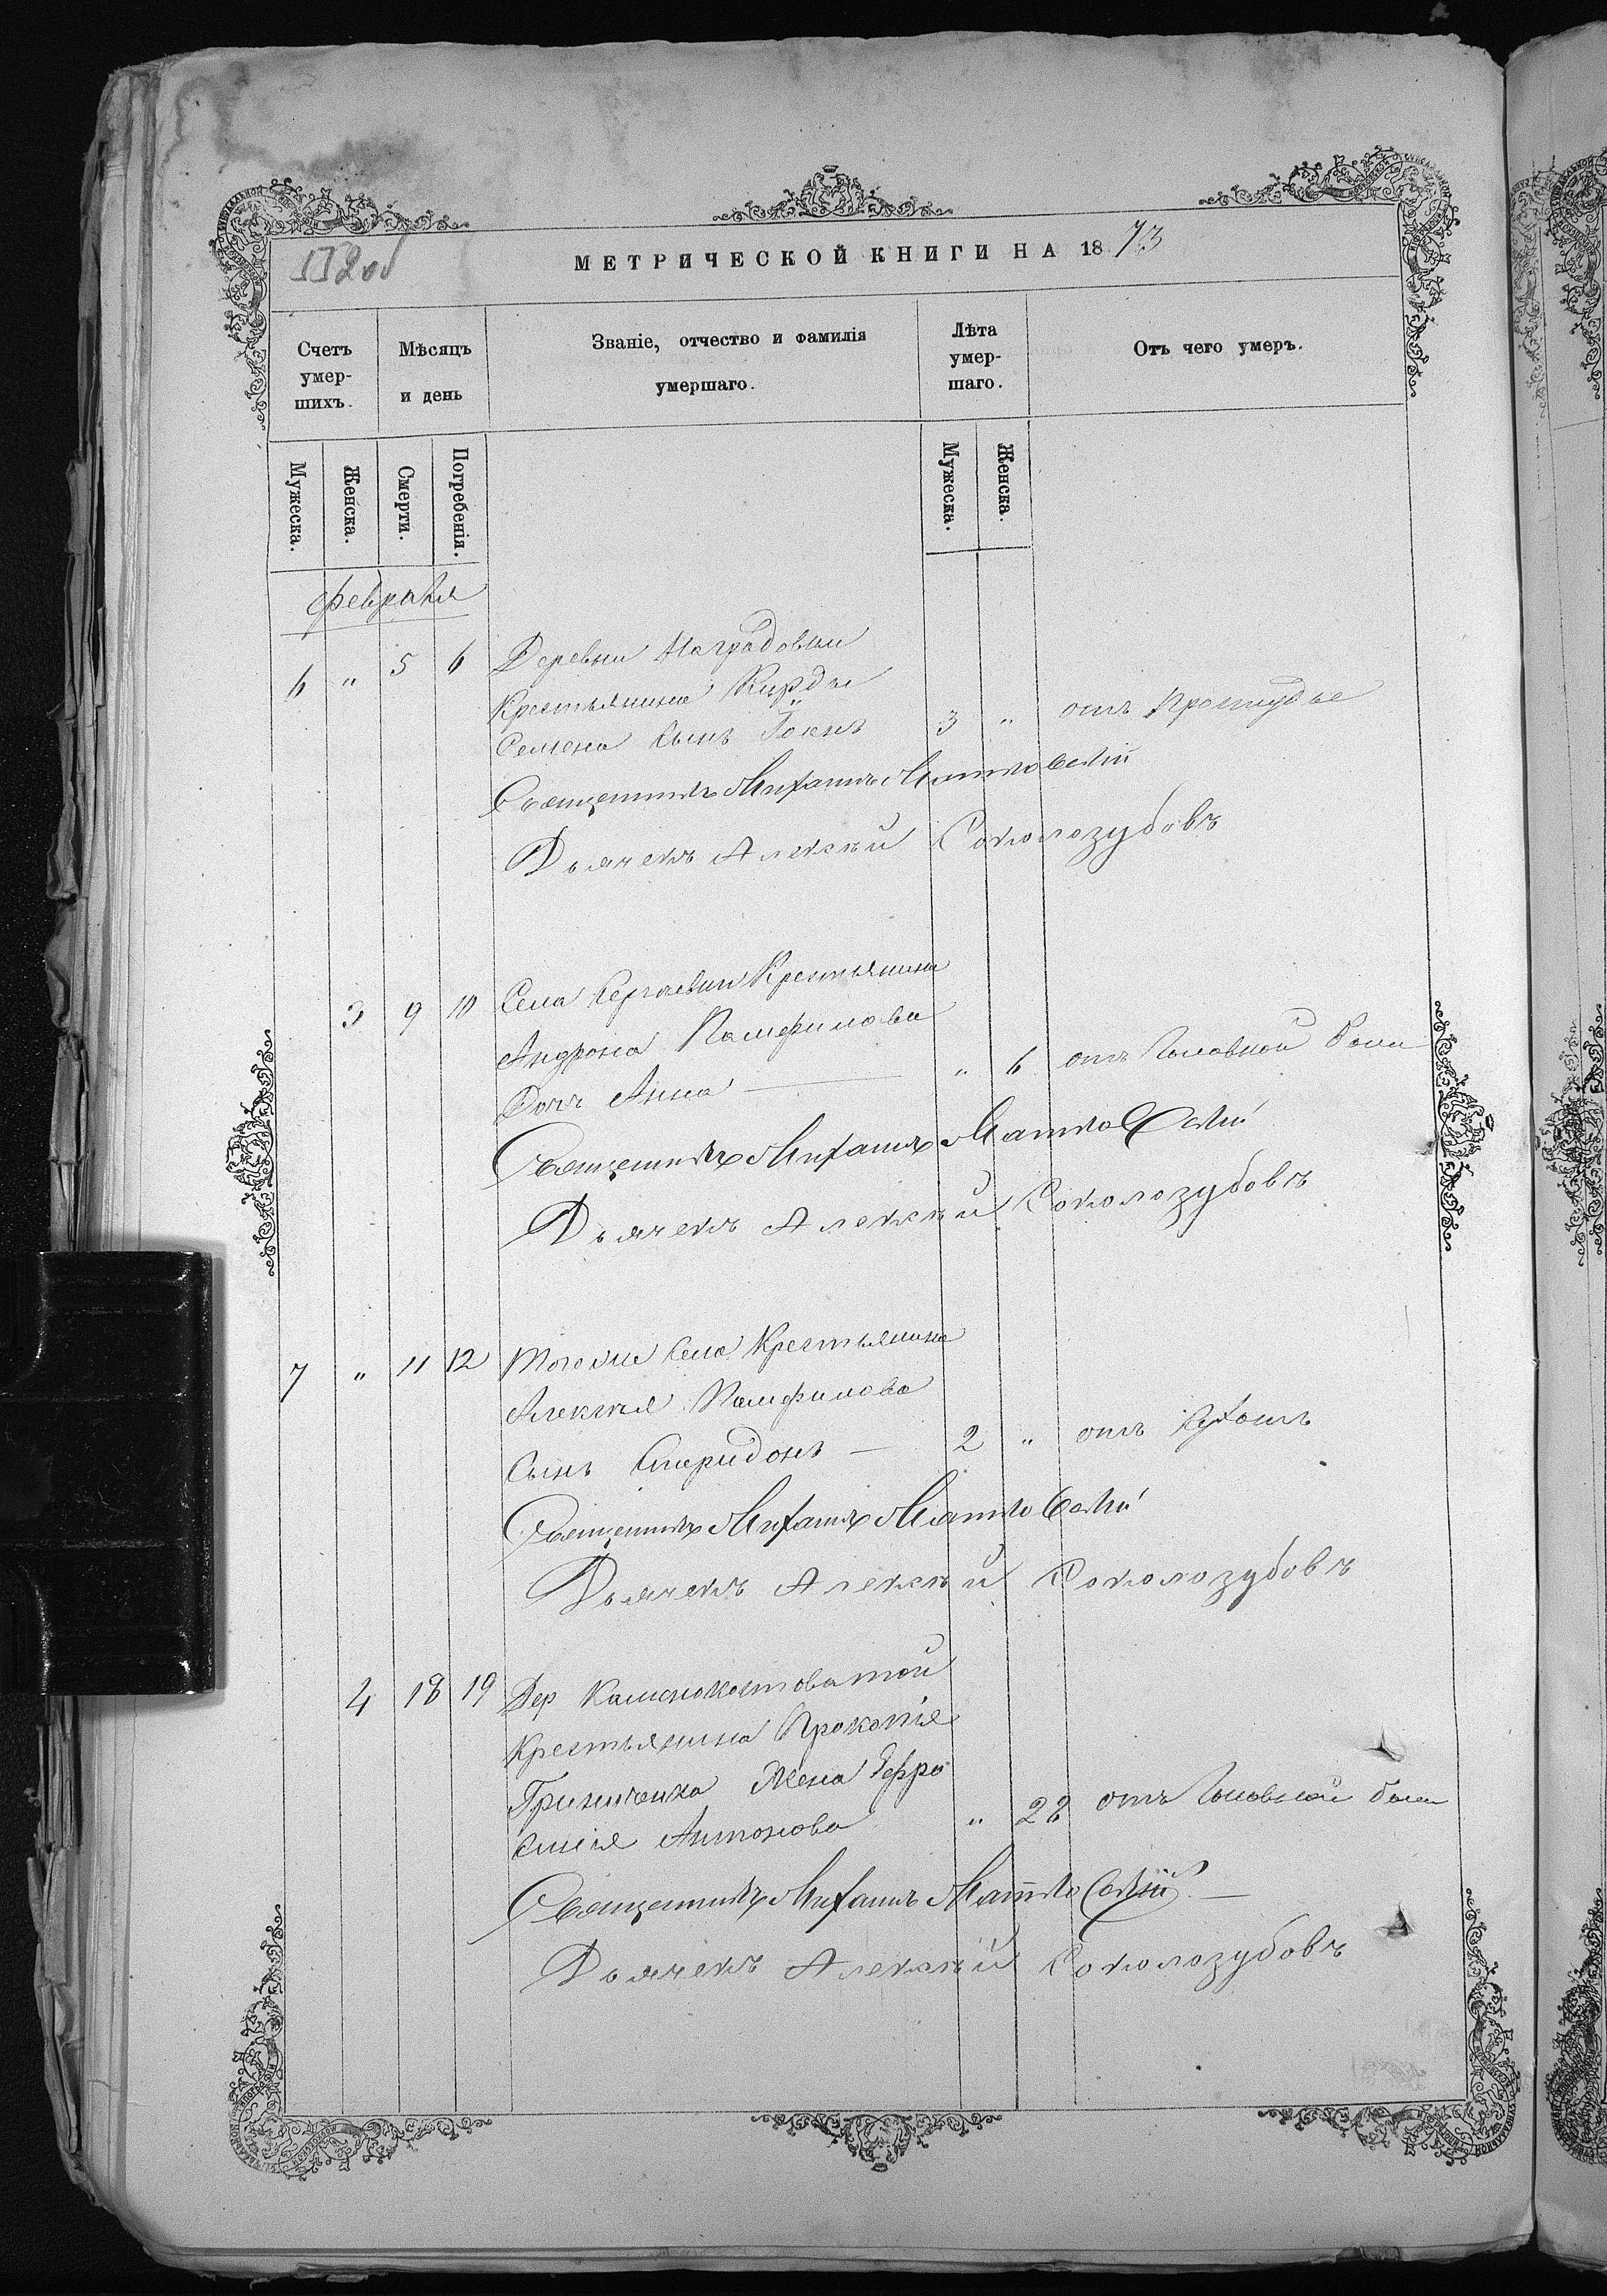 МЕТРИЧЕСКОЙ КНИГИ НА 1873
Счетъ умер-шихъ.
Мѣсяцъ и день
Званіе, отчество и фамилія умершаго.
Лѣта умер-шаго.
Отъ чего умеръ.
Мужеска.
Женска.
Смерти.
Погребенія.
Мужеска.
Женска.
февраля
6 " 5 6 Деревни Наградовки
Крестьянина Кирды
Семена сынъ 3 " отъ простуды
Священникъ Михаилъ Матковскій
Дьячекъ Алексѣй Соколозубовъ
3 9 10 Села Сергѣевки Крестьянина
Андрона Памфилова
Дочь Анна " 6 отъ головной боли
Священникъ Михаилъ Матковскій
Дьячекъ Алексѣй Соколозубовъ
7 " 11 12 Тогоже села Крестьянина
Алексѣя Памфилова
Сынъ Спиридонъ — 2 " отъ
Священникъ Михаилъ Матковскій
Дьячекъ Алексѣй Соколозубовъ
4 18 19 Дер Каменокостоватой
Крестьянина Прокопія
Гриниченка Жена Ефро
синія Антонова " 28 отъ головной боли
Священникъ Михаилъ Матковскій. —
Дьячекъ Алексѣй Соколозубовъ